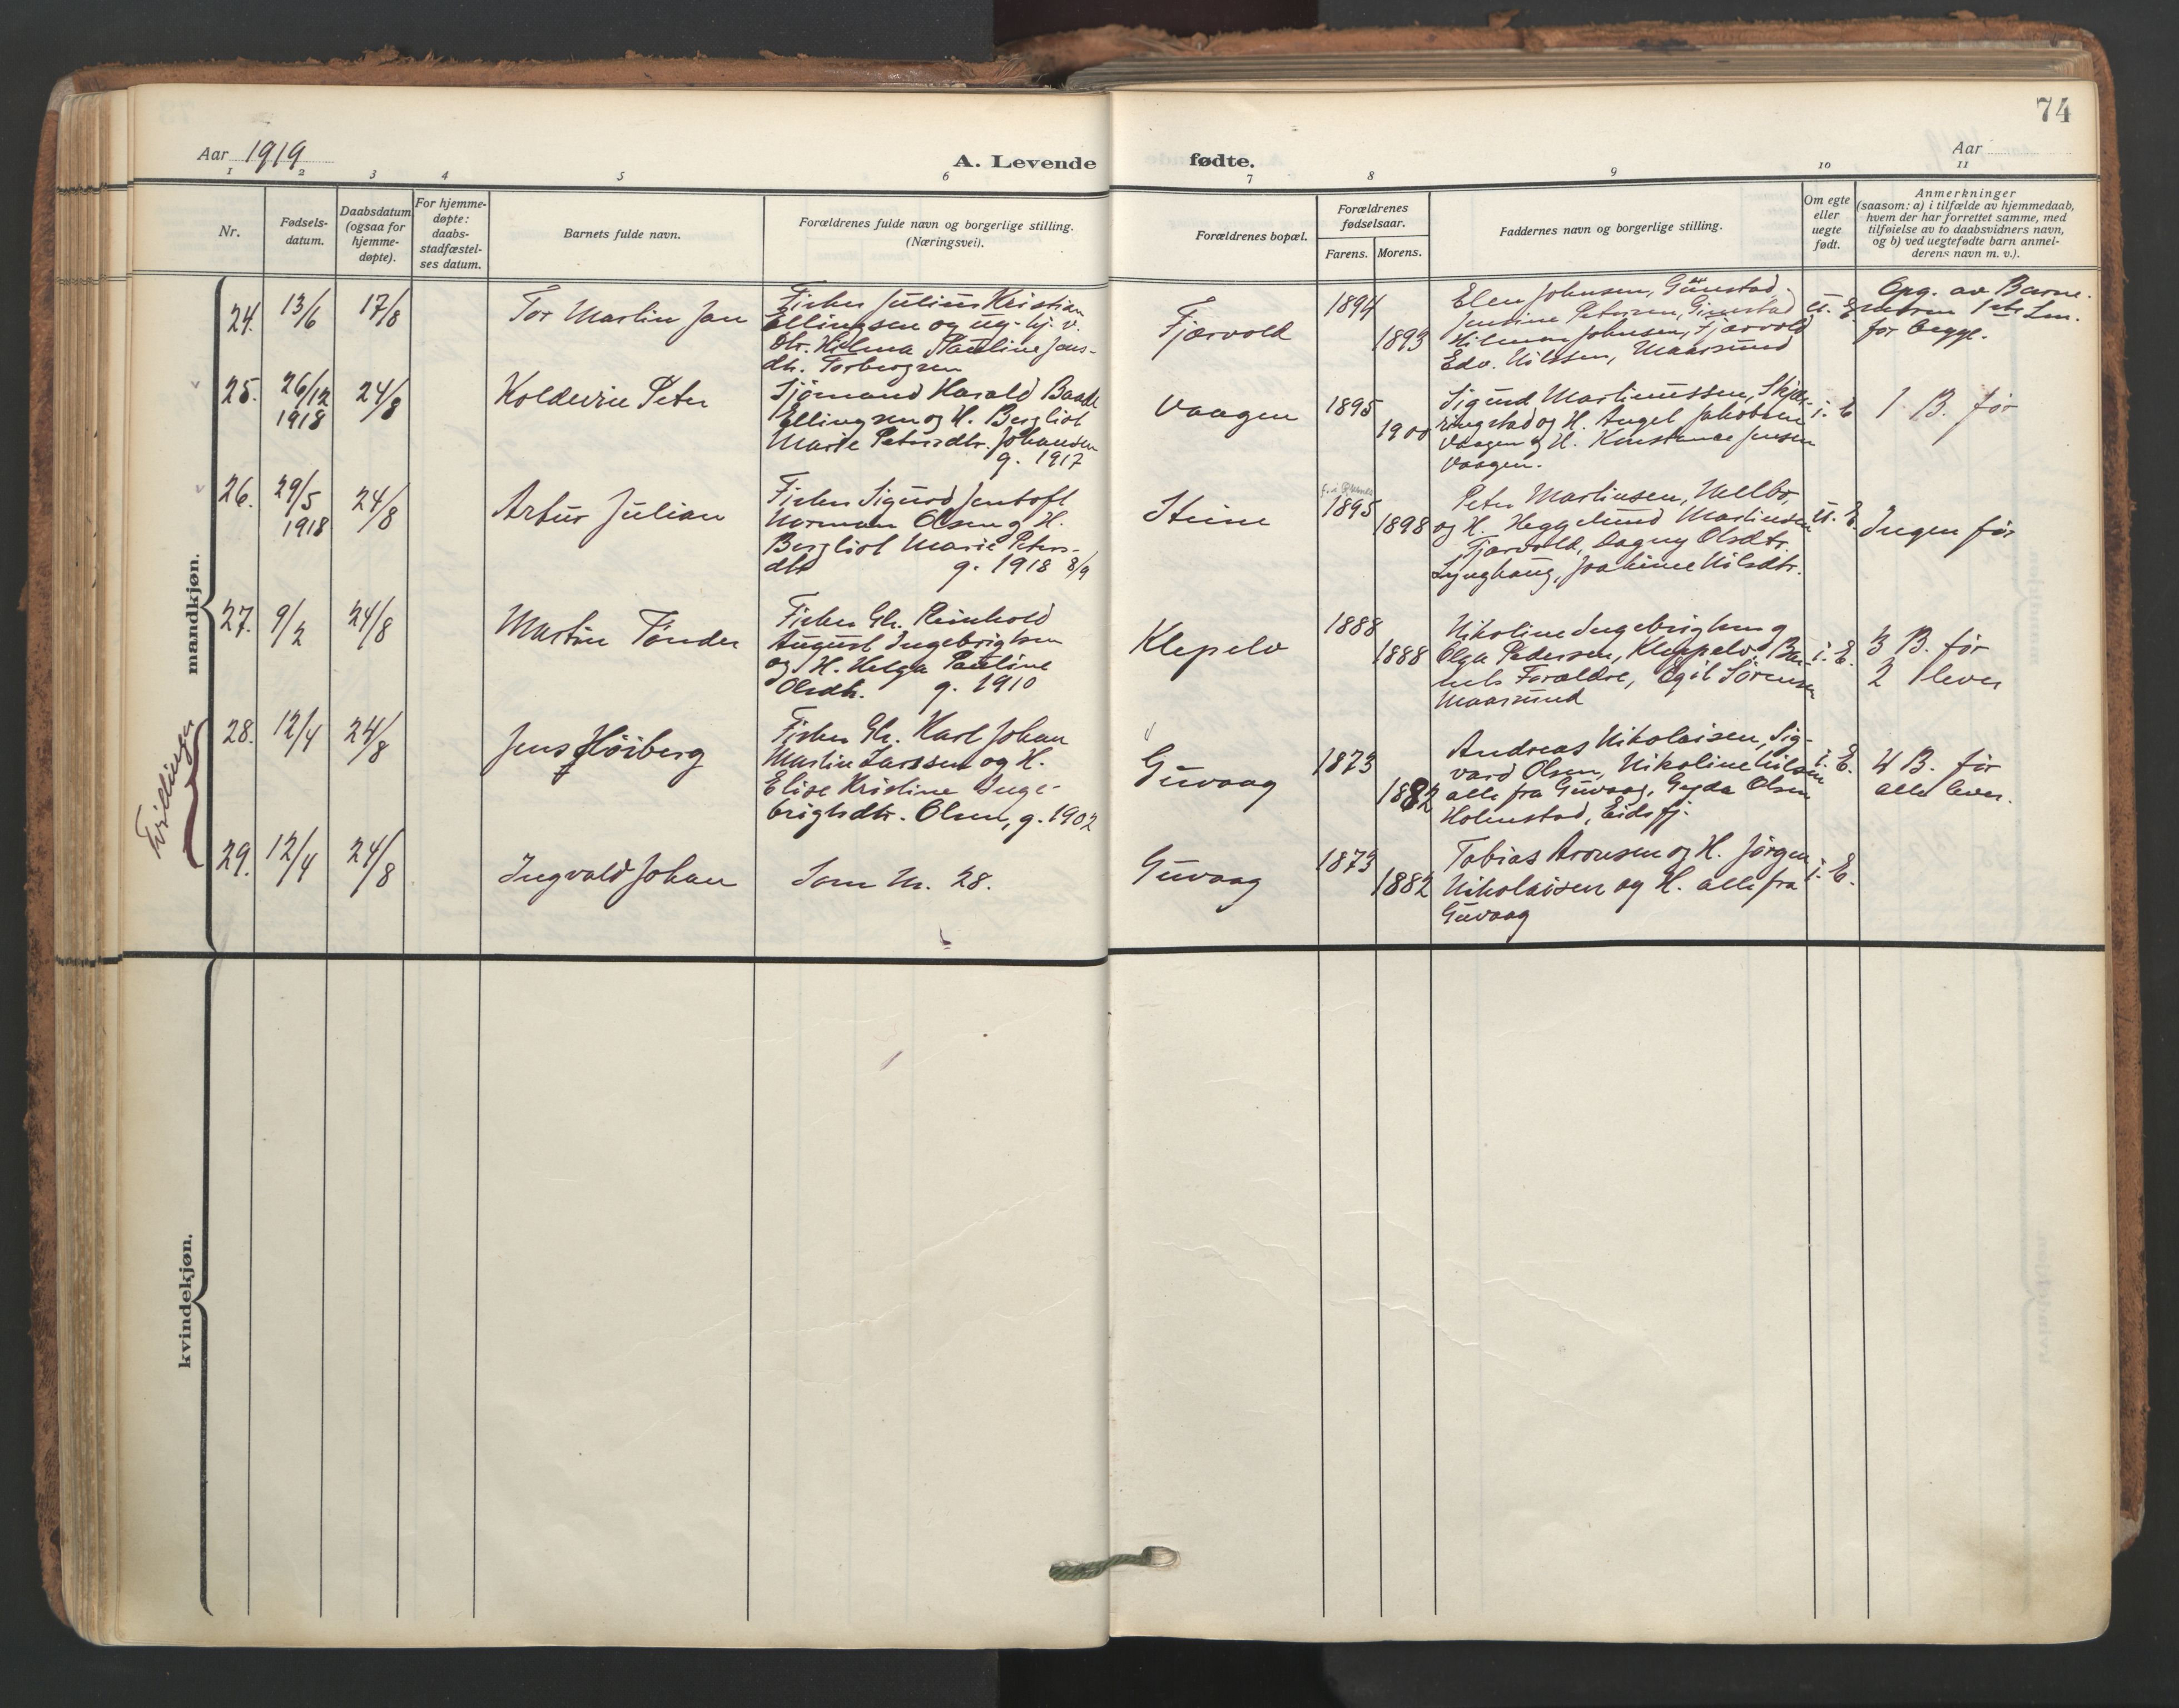 74
Aar 1919
A. Levende fødte.
Aar
1 2 3 4 5 6 7 8 9 10 11
Nr.
Fødsels-
datum.
Daabsdatum
(ogsaa for
hjemme-
døpte).
For hjemme-
døpte:
daabs-
stadfæstel-
ses datum.
Barnets fulde navn.
Forældrenes fulde navn og borgerlige stilling.
(Næringsvei).
Forældrenes bopæl.
Forældrenes
fødselsaar.
Farens. Morens.
Faddernes navn og borgerlige stilling.
Om egte
eller
uegte
født.
Anmerkninger
(saasom: a) i tilfælde av hjemmedaab,
hvem der har forrettet samme, med
tilføielse av to daabsvidners navn,
og b) ved uegtefødte barn anmel-
derens navn m. v.).
mandkjøn.
24. 13/6 17/8
Tor Martin Jan
Fisker Julius Kristian
Ellingsen og ug. hj. v.
Dtr. Hilma Pauline Jens-
dtr. Torbergsen
Fjærvold
1894
1893
Elen Johnsen, Guustad
Jensine Petersen, Ginnstad
Hilmar Johnsen, Fjærvold
Edv. Nilssen, Maarsund
U. E.
Opg. av Barne-
moren 1ste Lm.
for begge.
25. 26/12
1918
24/8
Koldevin Peter
Sjömand Harald Baade
Ellingsen og H. Bergliot
Marie Petersdtr. Johansen
g. 1917
Vaagen
1895
1900
Sigurd Martinussen, Skjær-
ringstad og H. Angel Jakobsen
Vaagen og H. Konstanse Jensen
Vaagen.
i. E
1 B. før
26. 29/5
1918
24/8
Artur Julian
Fisker Sigurd Jentoft
Norman Olsen og H.
Bergliot Marie Peters-
dtr g. 1918 8/9
Steine
1895
1898
Peter Martinsen, Melbo,
og H. Heggelund Martinsen
Fjærvold, Dagny Olsdtr.
Lynghaug, Joakime Nilsdtr.
U. E.
Ingen før
27. 9/2 24/8
Martin Tönder
Fisker Gb. Reinhold
August Ingebrigtsen
og H. Helga Pauline
Olsdtr. g. 1910
Klepelv
1888
1888
Nikoline Ingebrigtsen og
Olga Pedersen, Kleppelv. Bar-
nets Forældre, Egil Sörensen
Maarsund
i. E.
3 B. før
2 lever
Tvillinger
28. 12/4 24/8
Jens Höiberg
Fisker Gb. Karl Johan
Martin Larssen og H.
Elise Kristine Inge-
brigtsdtr. Olsen, g. 1902
Guvaag
1873
1882
Andreas Nikolaisen, Sig-
vard Olsen, Nikoline Nilsen
alle fra Guvaag, Gyda Olsen
Holmstad, Eidsfj.
i. E.
4 B. før
alle lever.
29. 12/4 24/8
Ingvald Johan
Som Nr. 28.
Guvaag
1873
1882
Tobias Aronsen og H. Jörgen
Nikolaisen og H. alle fra
Guvaag
i. E.
kvindekjøn.